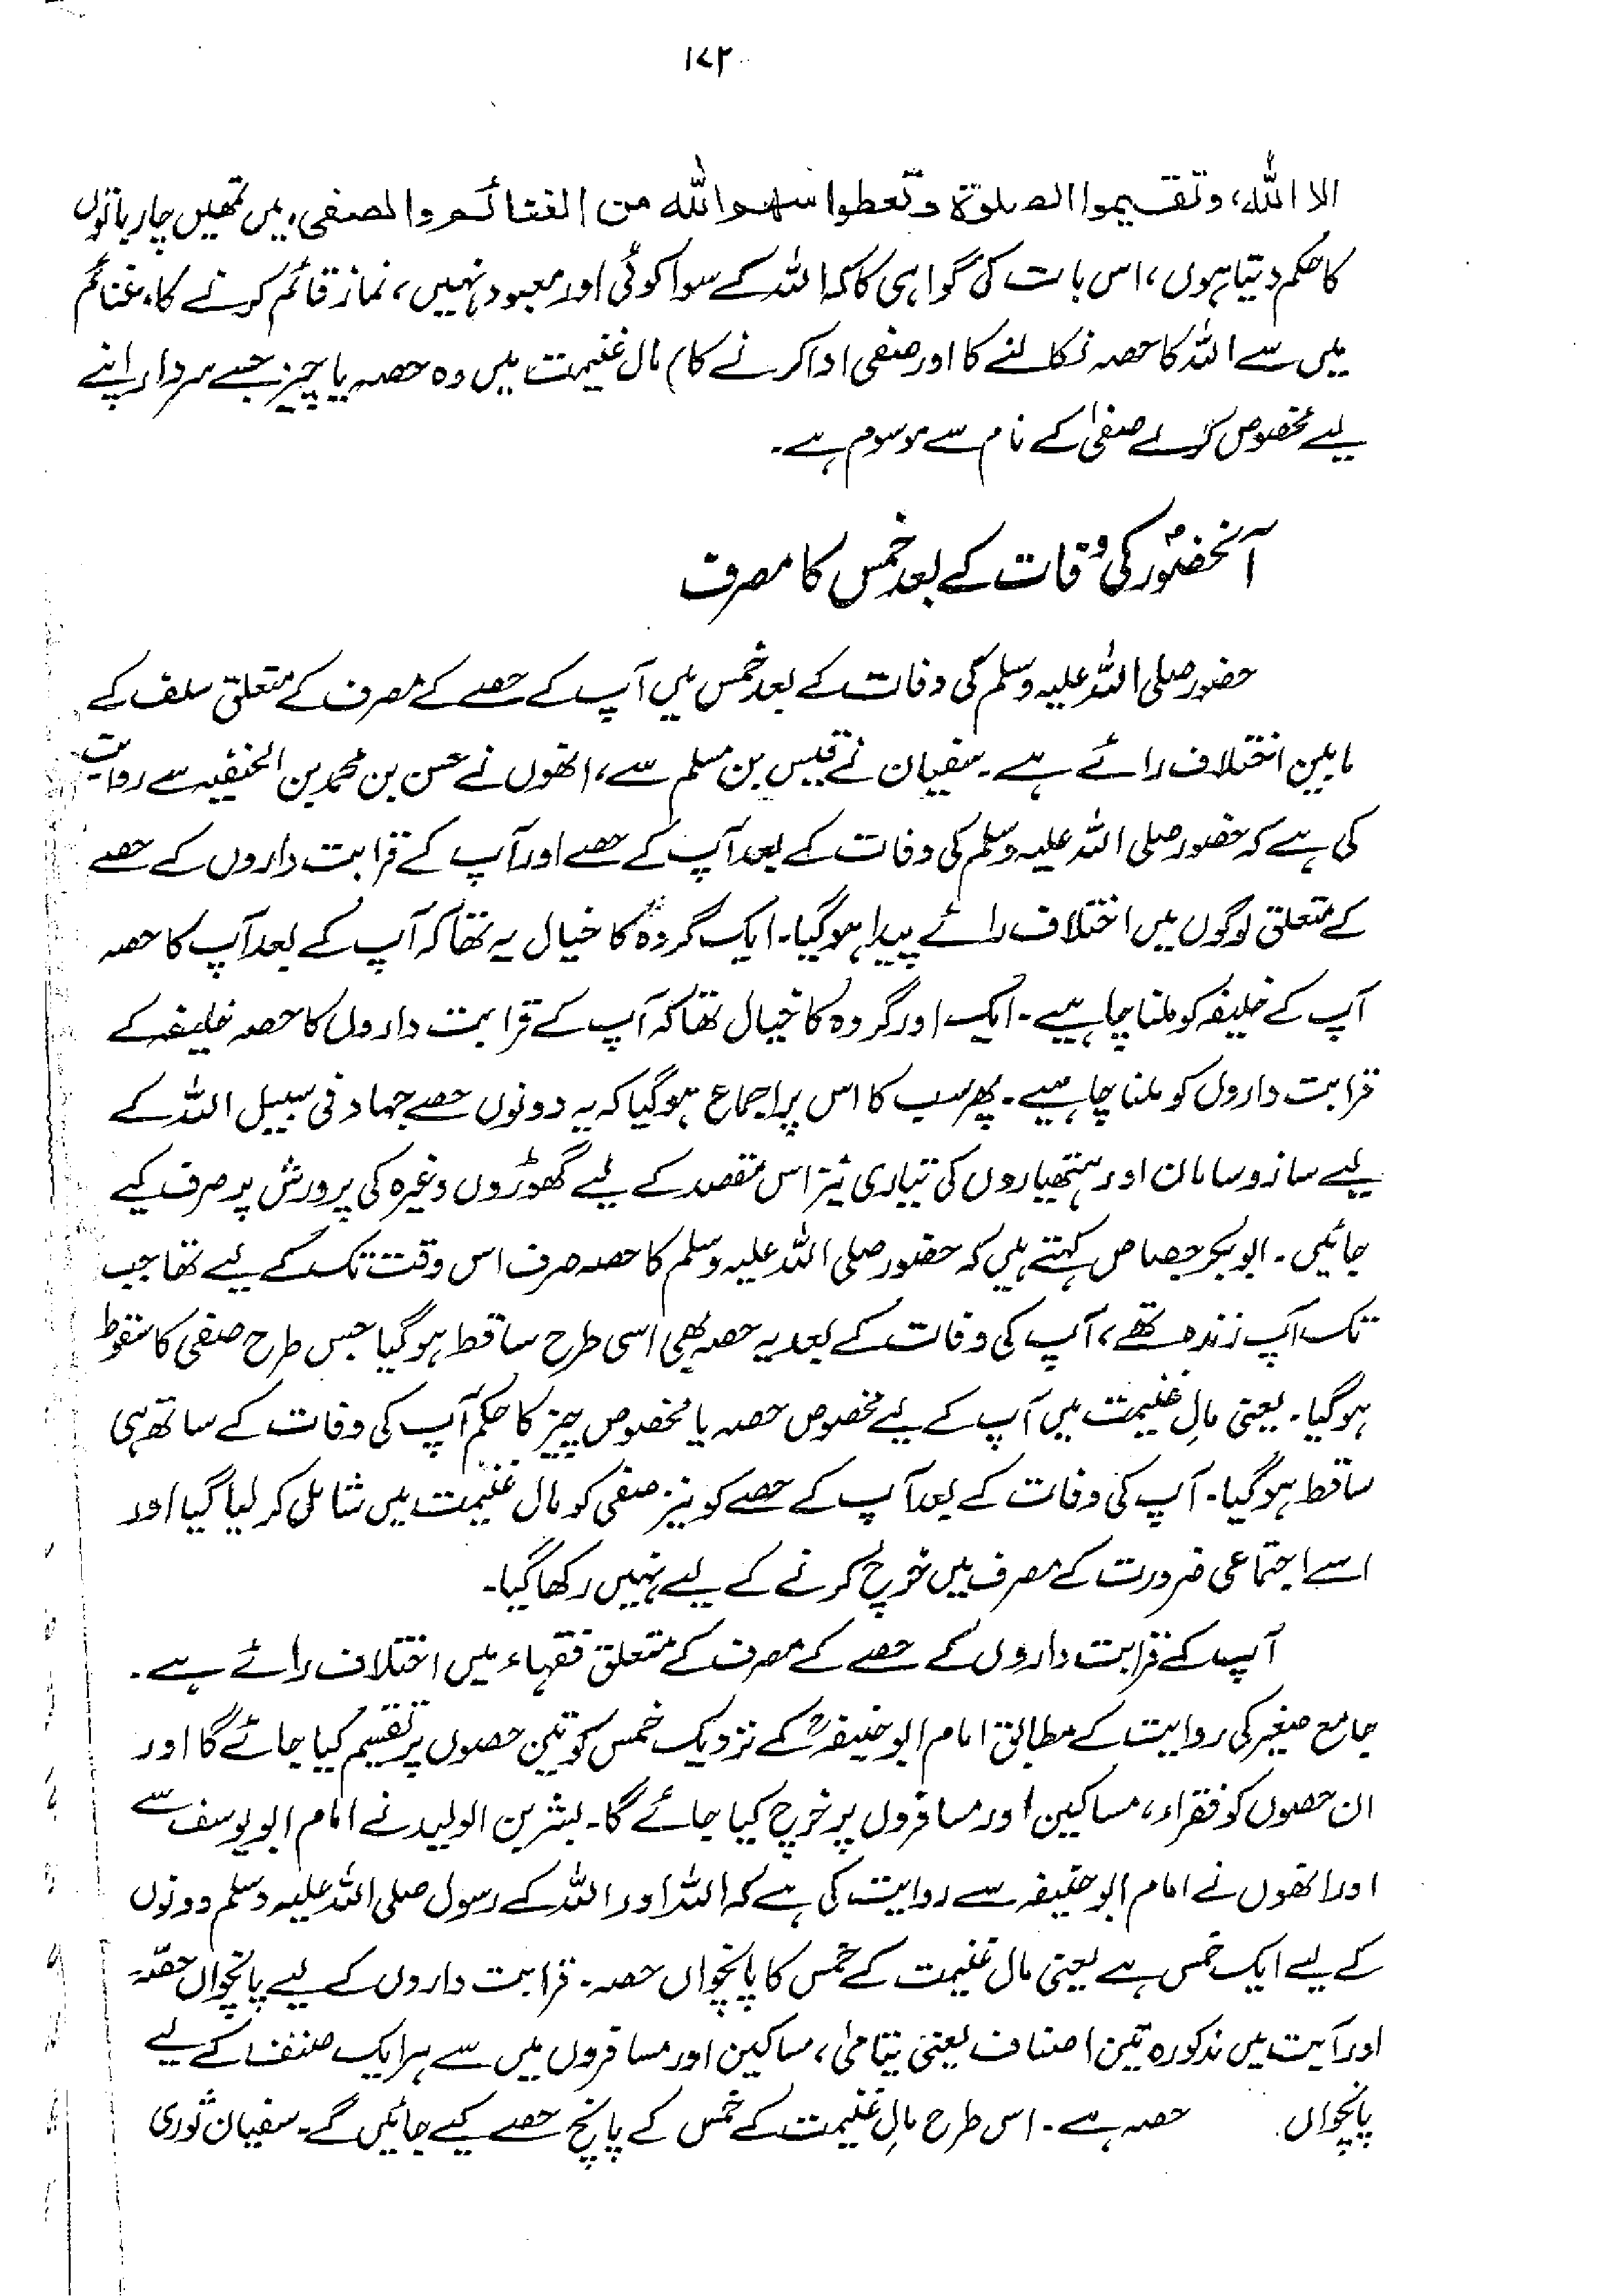 ۱۷۲
الا اللہ، وتقیموا الصلوۃ وتعطوا سھم اللہ من الغنائم والصفی، میں تمھیں چار باتوں
کا حکم دیتا ہوں، اس بات کی گواہی کا کہ اللہ کے سوا کوئی اور معبود نہیں، نماز قائم کرنے کا، غنائم
میں سے اللہ کا حصہ نکالنے کا اور صفی ادا کرنے کا) مال غنیمت میں وہ حصہ یا چیز جسے سردار اپنے
لیے مخصوص کرلے صفی کے نام سے موسوم ہے۔
آنحضورؐ کی وفات کے بعد خمس کا مصرف
حضور صلی اللہ علیہ وسلم کی وفات کے بعد خمس میں آپ کے حصے کے مصرف کے متعلق سلف کے
مابین اختلاف رائے ہے۔ سفیان نے قیس بن مسلم سے، انھوں نے حسن بن محمد بن الحنفیہ سے روایت
کی ہے کہ حضور صلی اللہ علیہ وسلم کی وفات کے بعد آپ کے حصے اور آپ کے قرابت داروں کے حصے
کے متعلق لوگوں میں اختلاف رائے پیدا ہوگیا۔ ایک گروہ کا خیال یہ تھا کہ آپ کے بعد آپ کا حصہ
آپ کے خلیفہ کو ملنا چاہیے۔ ایک اور گروہ کا خیال تھا کہ آپ کے قرابت داروں کا حصہ خلیفہ کے
قرابت داروں کو ملنا چاہیے۔ پھر سب کا اس پر اجماع ہوگیا کہ یہ دونوں حصے جہاد فی سبیل اللہ کے
لیے سازوسامان اور ہتھیاروں کی تیاری نیز اس مقصد کے لیے گھوڑوں وغیرہ کی پرورش پر صرف کیے
جائیں۔ ابوبکر جصاص کہتے ہیں کہ حضور صلی اللہ علیہ وسلم کا حصہ صرف اس وقت تک کے لیے تھا جب
تک آپ زندہ تھے، آپ کی وفات کے بعد یہ حصہ بھی اسی طرح ساقط ہوگیا جس طرح صفی کا سقوط
ہوگیا۔ یعنی مالِ غنیمت میں آپ کے لیے مخصوص حصہ یا مخصوص چیز کا حکم آپ کی وفات کے ساتھ ہی
ساقط ہوگیا۔ آپ کی وفات کے بعد آپ کے حصے کو نیز صفی کو مال غنیمت میں شامل کر لیا گیا اور
اسے اجتماعی ضرورت کے مصرف میں خرچ کرنے کے لیے نہیں رکھا گیا۔
آپ کے قرابت داروں کے حصے کے مصرف کے متعلق فقہاء میں اختلاف رائے ہے۔
جامع صغیر کی روایت کے مطابق امام ابوحنیفہؒ کے نزدیک خمس کو تین حصوں پر تقسیم کیا جائے گا اور
ان حصوں کو فقراء، مساکین اور مسافروں پر خرچ کیا جائے گا۔ بشر بن الولید نے امام ابویوسف سے
اور انھوں نے امام ابوحنیفہ سے روایت کی ہے کہ اللہ اور اللہ کے رسول صلی اللہ علیہ وسلم دونوں
کے لیے ایک خمس ہے یعنی مال غنیمت کے خمس کا پانچواں حصہ۔ قرابت داروں کے لیے پانچواں حصّہ
اور آیت میں مذکورہ تین اصناف یعنی یتامیٰ، مساکین اور مسافروں میں سے ہر ایک صنف کے لیے
پانچواں حصہ ہے۔ اس طرح مالِ غنیمت کے خمس کے پانچ حصے کیے جائیں گے۔ سفیان ثوری